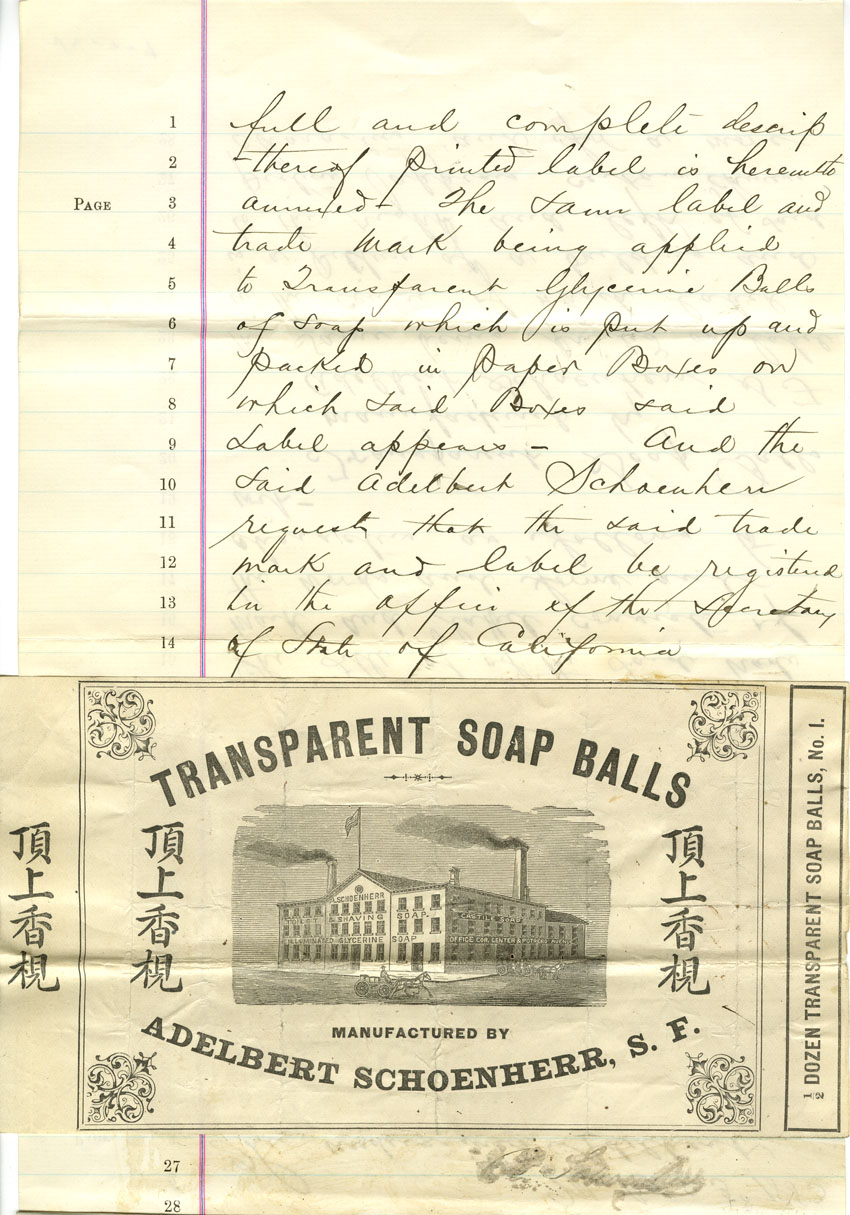 1 full and complete descrip
2 -thereof printed label is hereunto
PAGE 3 annexed - The same label and
4 trade mark being applied
5 to Transparent Glycerine Balls
6 of soap which is put up and
7 packed in Paper Boxes on
8 which said Boxes said
9 Label appears - And the
10 said Adelbert Schoenherr
11 requests that the said trade
12 mark and label be registered
13 in the office of the Secretary
14 of State of California
TRANSPARENT SOAP BALLS
頂上香梘
頂上香梘
頂上香梘
A. SCHOENHERR
TOILET & SHAVING SOAP.
CASTILE SOAP
ILLUMINATED GLYCERINE SOAP
OFFICE COR. CENTER & POTRERO AVENUE
MANUFACTURED BY
ADELBERT SCHOENHERR, S. F.
1/2 DOZEN TRANSPARENT SOAP BALLS, No. 1.
27
28